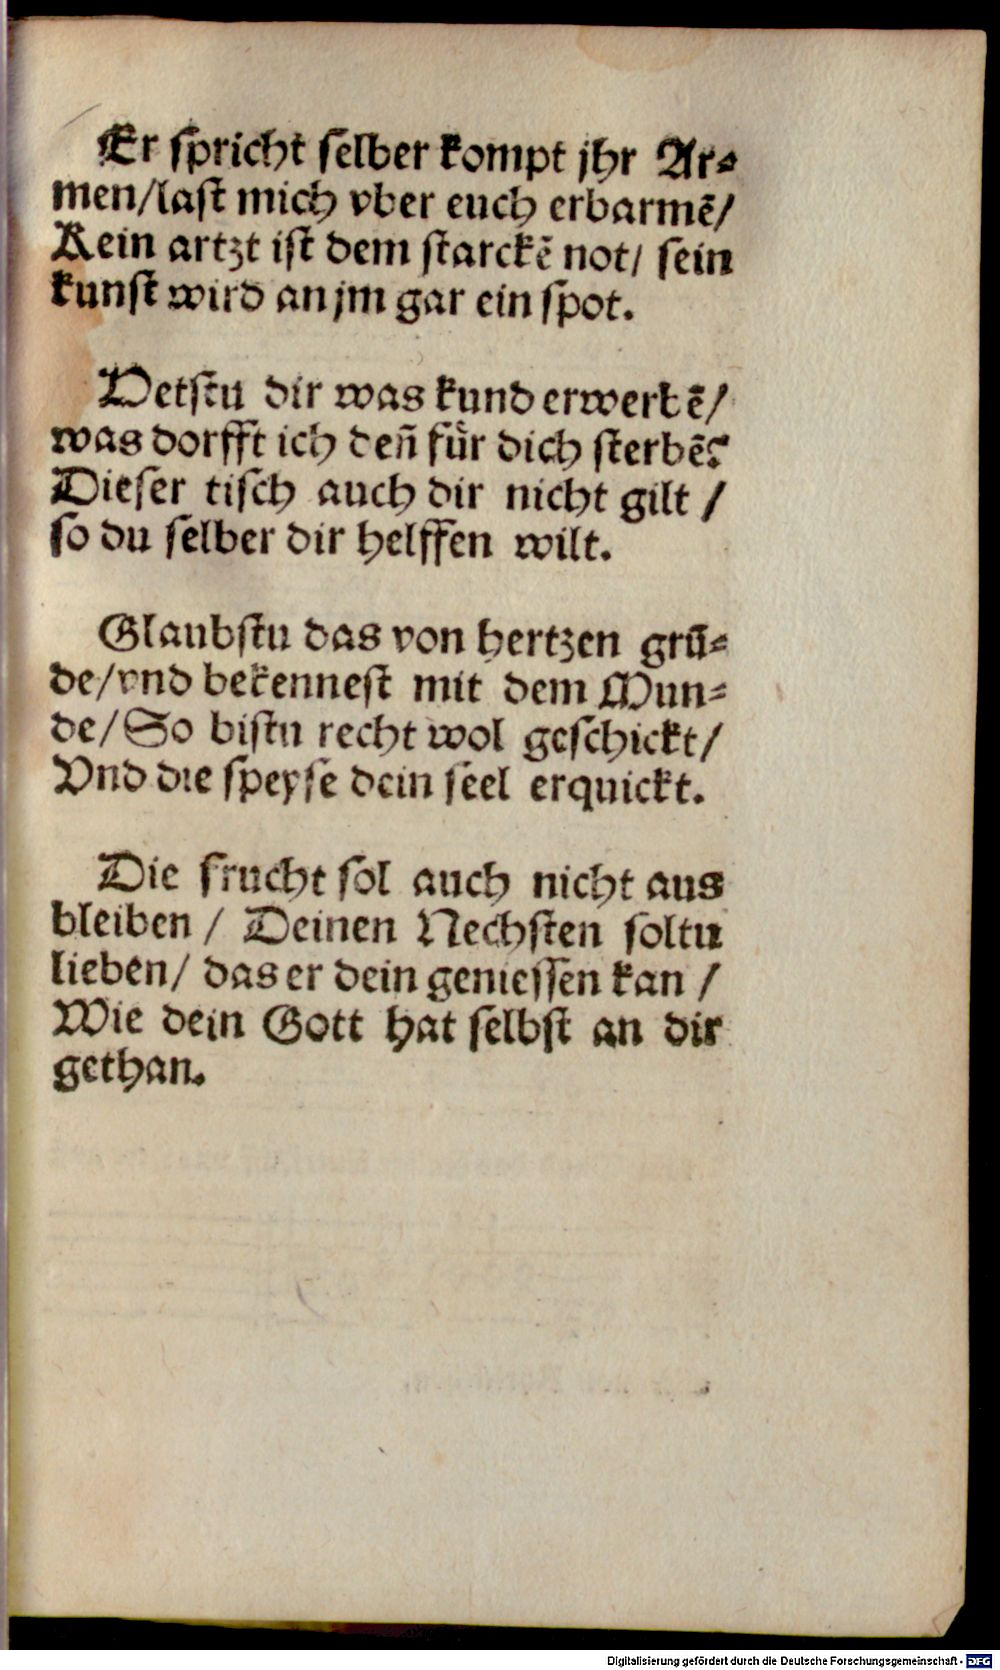 Er spricht selber kompt jhr Ar⸗
men/last mich vber euch erbarmẽ/
Kein artzt ist dem starckẽ not/ sein
kunst wird an jm gar ein spot.
Hetstu dir was kund erwerbẽ/
was dorfft ich deñ fuͤr dich sterbẽ?
Dieser tisch auch dir nicht gilt /
so du selber dir helffen wilt.
Glaubstu das von hertzen grũ⸗
de/vnd bekennest mit dem Mun⸗
de/ So bistu recht wol geschickt/
Vnd die speyse dein seel erquickt.
Die frucht sol auch nicht aus
bleiben / Deinen Nechsten soltu
lieben/ das er dein geniessen kan /
Wie dein Gott hat selbst an dir
gethan.
Digitalisierung gefördert durch die Deutsche Forschungsgemeinschaft - DFG